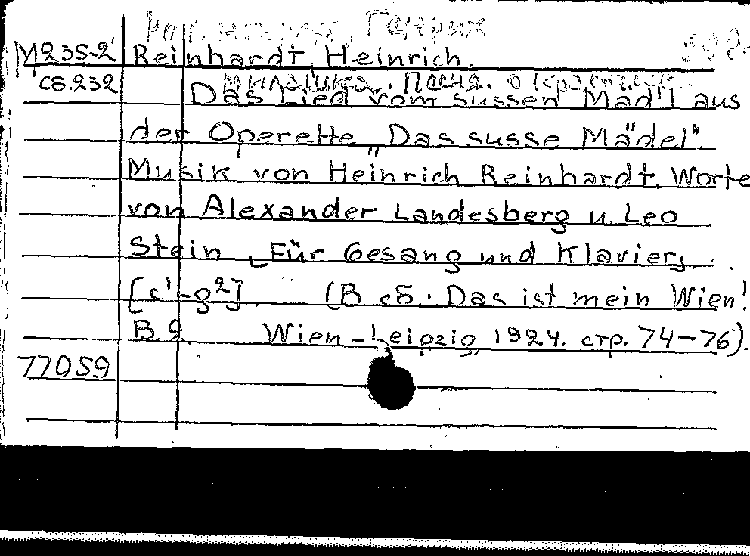 Генрих
М235-2 Reinhardt, Heinrich.
сб.232
Das Lied vom süssen Mäd'l aus
der Operette „Das süsse Mädel".
Musik von Heinrich Reinhardt. Worte
von Alexander Landesberg u. Leo
Stein [Für Gesang und Klavier]
[c¹-g²] (В сб. Das ist mein Wien!
B 9 Wien-Leipzig, 1924. стр. 74-76).
77059